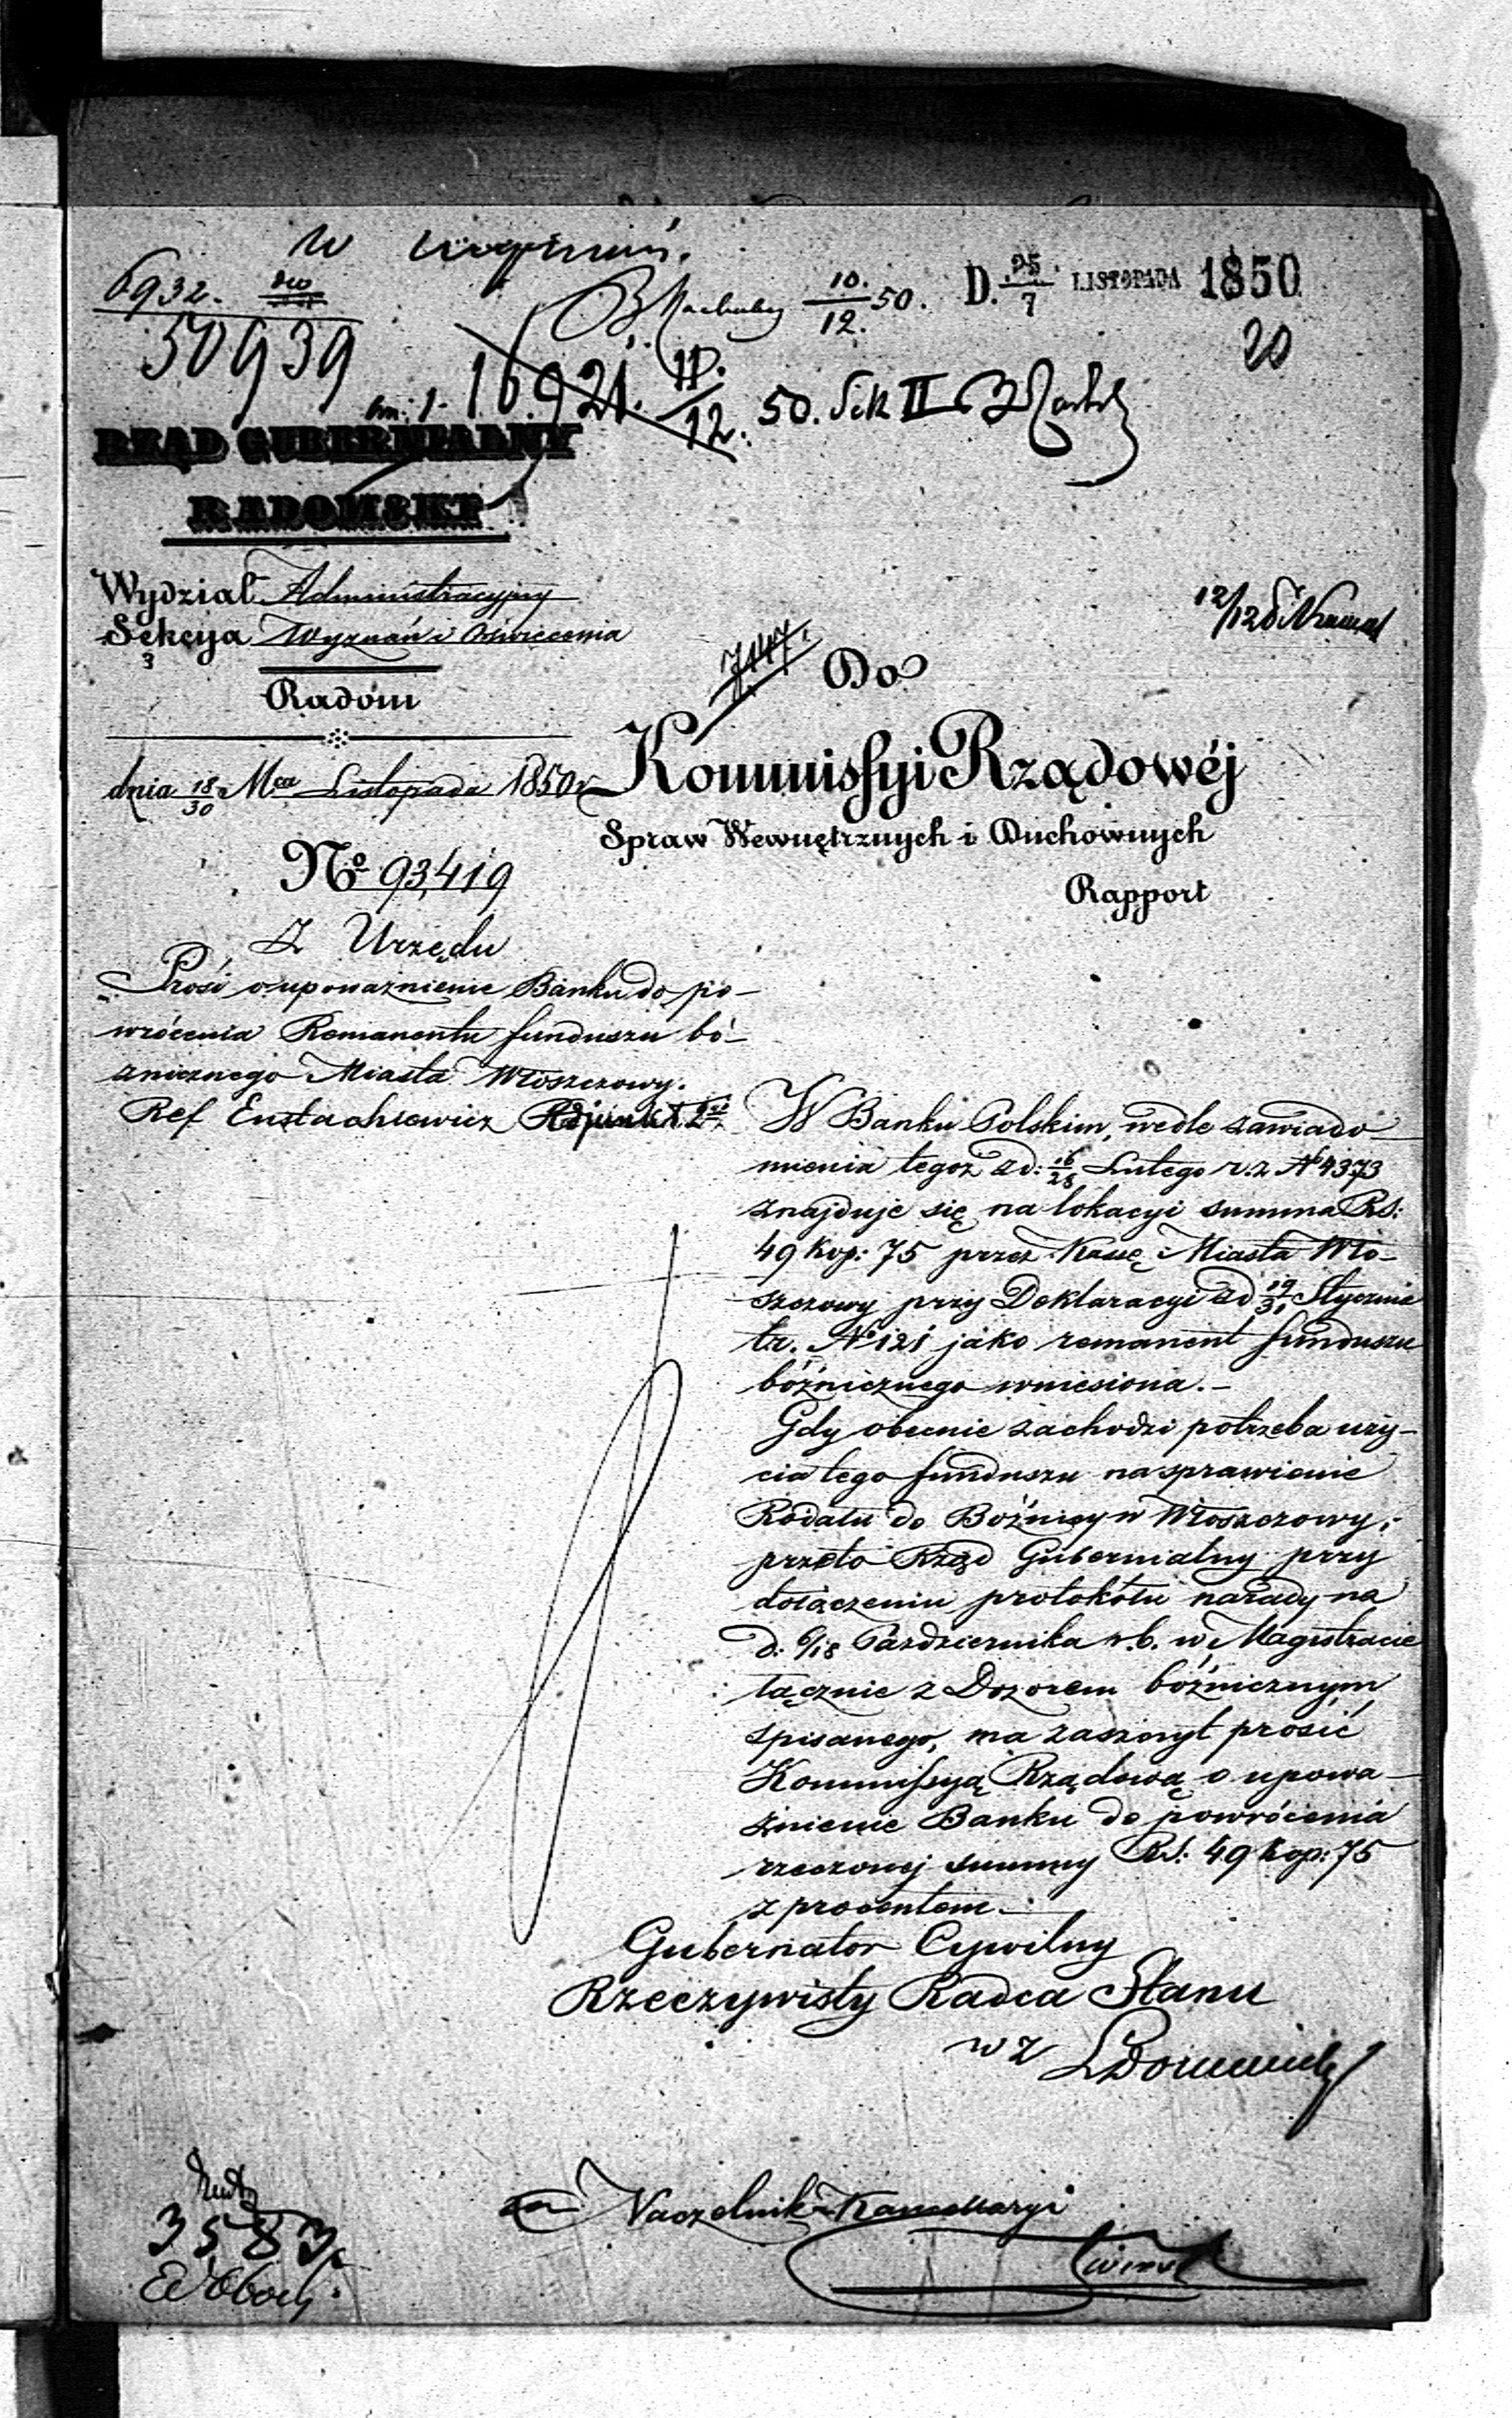 W
6932.
50939
10/12. 50.
D. 25/7 LISTOPADA 1850
20
16921. 11/12. 50. Sek II
RZĄD GUBERNIALNY
RADOMSKI
Wydział Administracyjny
Sekcya Wyznań i Oświecenia
3
Radom
dnia 18/30 Mca Listopada 1850 r
No 93,419
Z Urzędu
Prosi o upoważnienie Banku do po-
wrócenia Remanentu funduszu bó-
żnicznego Miasta Włoszczowy.
Ref Eustachiewicz Adjunkt
12/12
7147.
Do
Kommissyi Rządowéj
Spraw Wewnętrznych i Duchownych
Rapport
W Banku Polskim, wedle zawiado-
mienia tegoż z d: 16/28 Lutego r. z No 4373
znajduje się na lokacyi summa RS:
49 kop: 75 przez Kassę Miasta Wło-
szczowy przy Deklaracyi z d 19/31 Stycznia
t.r. No 121 jako remanent funduszu
bóżnicznego wniesiona.-
Gdy obecnie zachodzi potrzeba uży-
cia tego funduszu na sprawienie
Rodału do Bożnicy w Włoszczowy,
przeto Rząd Gubernialny przy
dołączeniu protokółu narady na
d: 6/18 Października r.b. w Magistracie
łącznie z Dozorem bóżnicznym
spisanego, ma zaszczyt prosić
Kommissyą Rządową o upowa-
żnienie Banku do powrócenia
rzeczonej summy RS: 49 kop: 75
z procentem.
Gubernator Cywilny
Rzeczywisty Radca Stanu
w z
Naczelnik Kancellaryi
3583